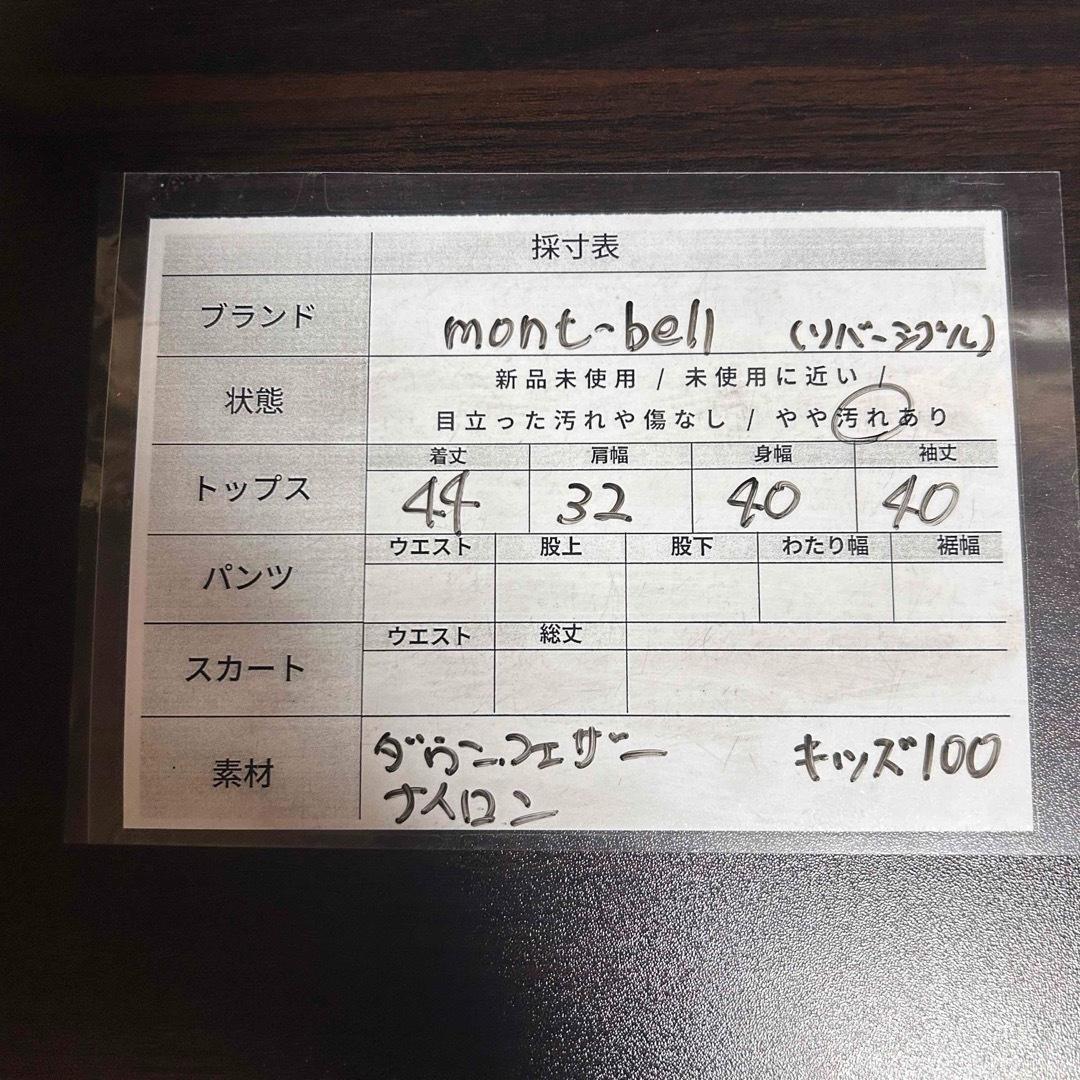 採寸表
ブランド mont-bell (リバーシブル)
状態 新品未使用 / 未使用に近い /
目立った汚れや傷なし / やや汚れあり
トップス 着丈 肩幅 身幅 袖丈
44 32 40 40
パンツ ウエスト 股上 股下 わたり幅 裾幅
スカート ウエスト 総丈
素材 ダウン.フェザー キッズ100
ナイロン